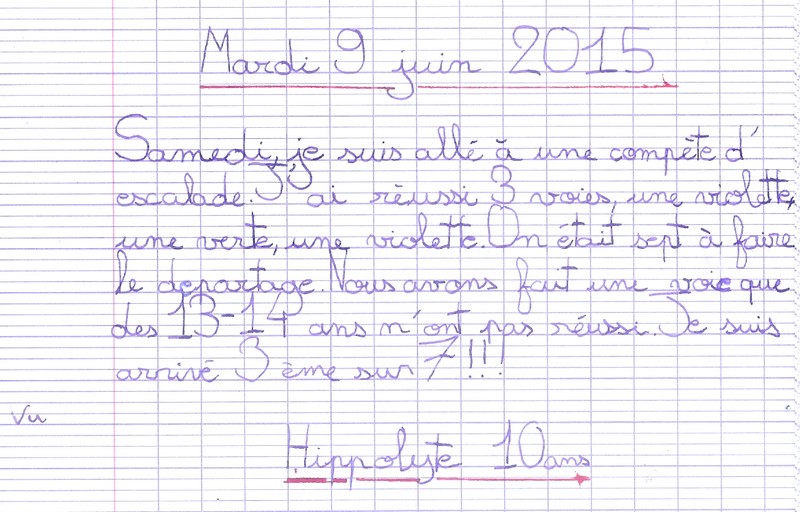 Mardi 9 juin 2015
Samedi, je suis allé à une compète d'
escalade. J'ai réussi 3 voies, une violette,
une verte, une violette. On était sept à faire
le départage. Nous avons fait une voie que
des 13-14 ans n'ont pas réussi. Je suis
arrivé 3 ème sur 7!!!
Vu
Hippolyte 10ans